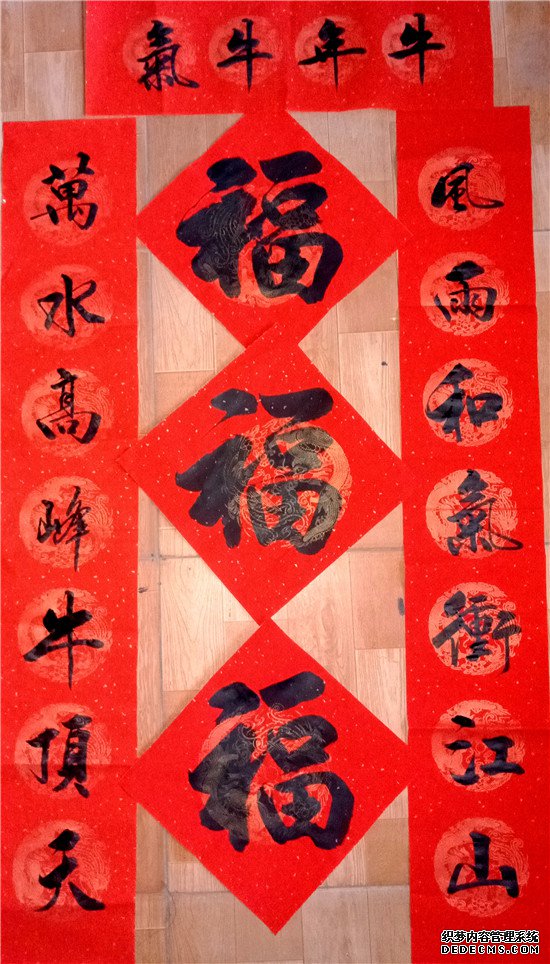 牛年牛氣
風雨和氣衝江山
萬水髙峰牛頂天
福
福
福
织梦内容管理系统
DEDECMS.COM